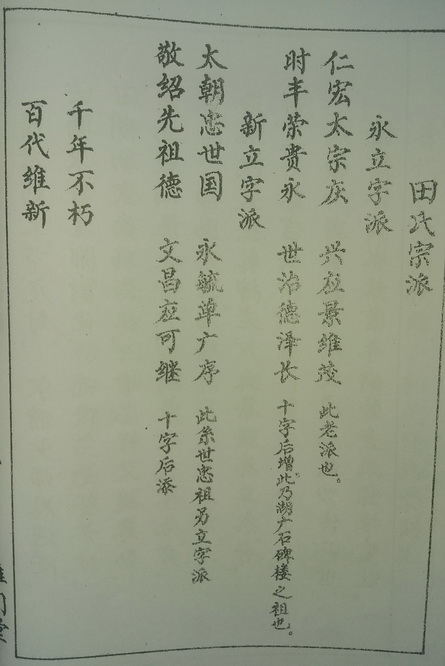 田氏宗派
永立字派
仁宏太宗庆 兴应景维茂 此老派也。
时丰荣贵永 世治德泽长 十字后增此乃湖广石碑楼之祖也。
新立字派
太朝忠世国 永毓单广序 此系世忠祖另立字派
敬绍先祖德 文昌应可继 十字后添
千年不朽
百代维新